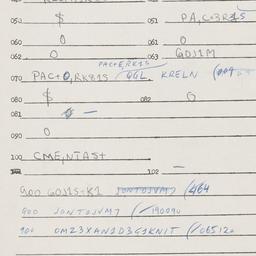 050 $ 051 PA,C=3R15
060 0 061 0
062 0 063 GOJ1M
PAC+E,RK15
070 PAC+0,RK815 GGL KRELN
080 $ 082 0
081 0 —
090 0
100 CME,NTAS+
102 —
900 GOJ1S+K1 JONTOJVM7 /464
900 JONTOJVM7 /190090
900 OM23XAN1D3G1KNIT /065120